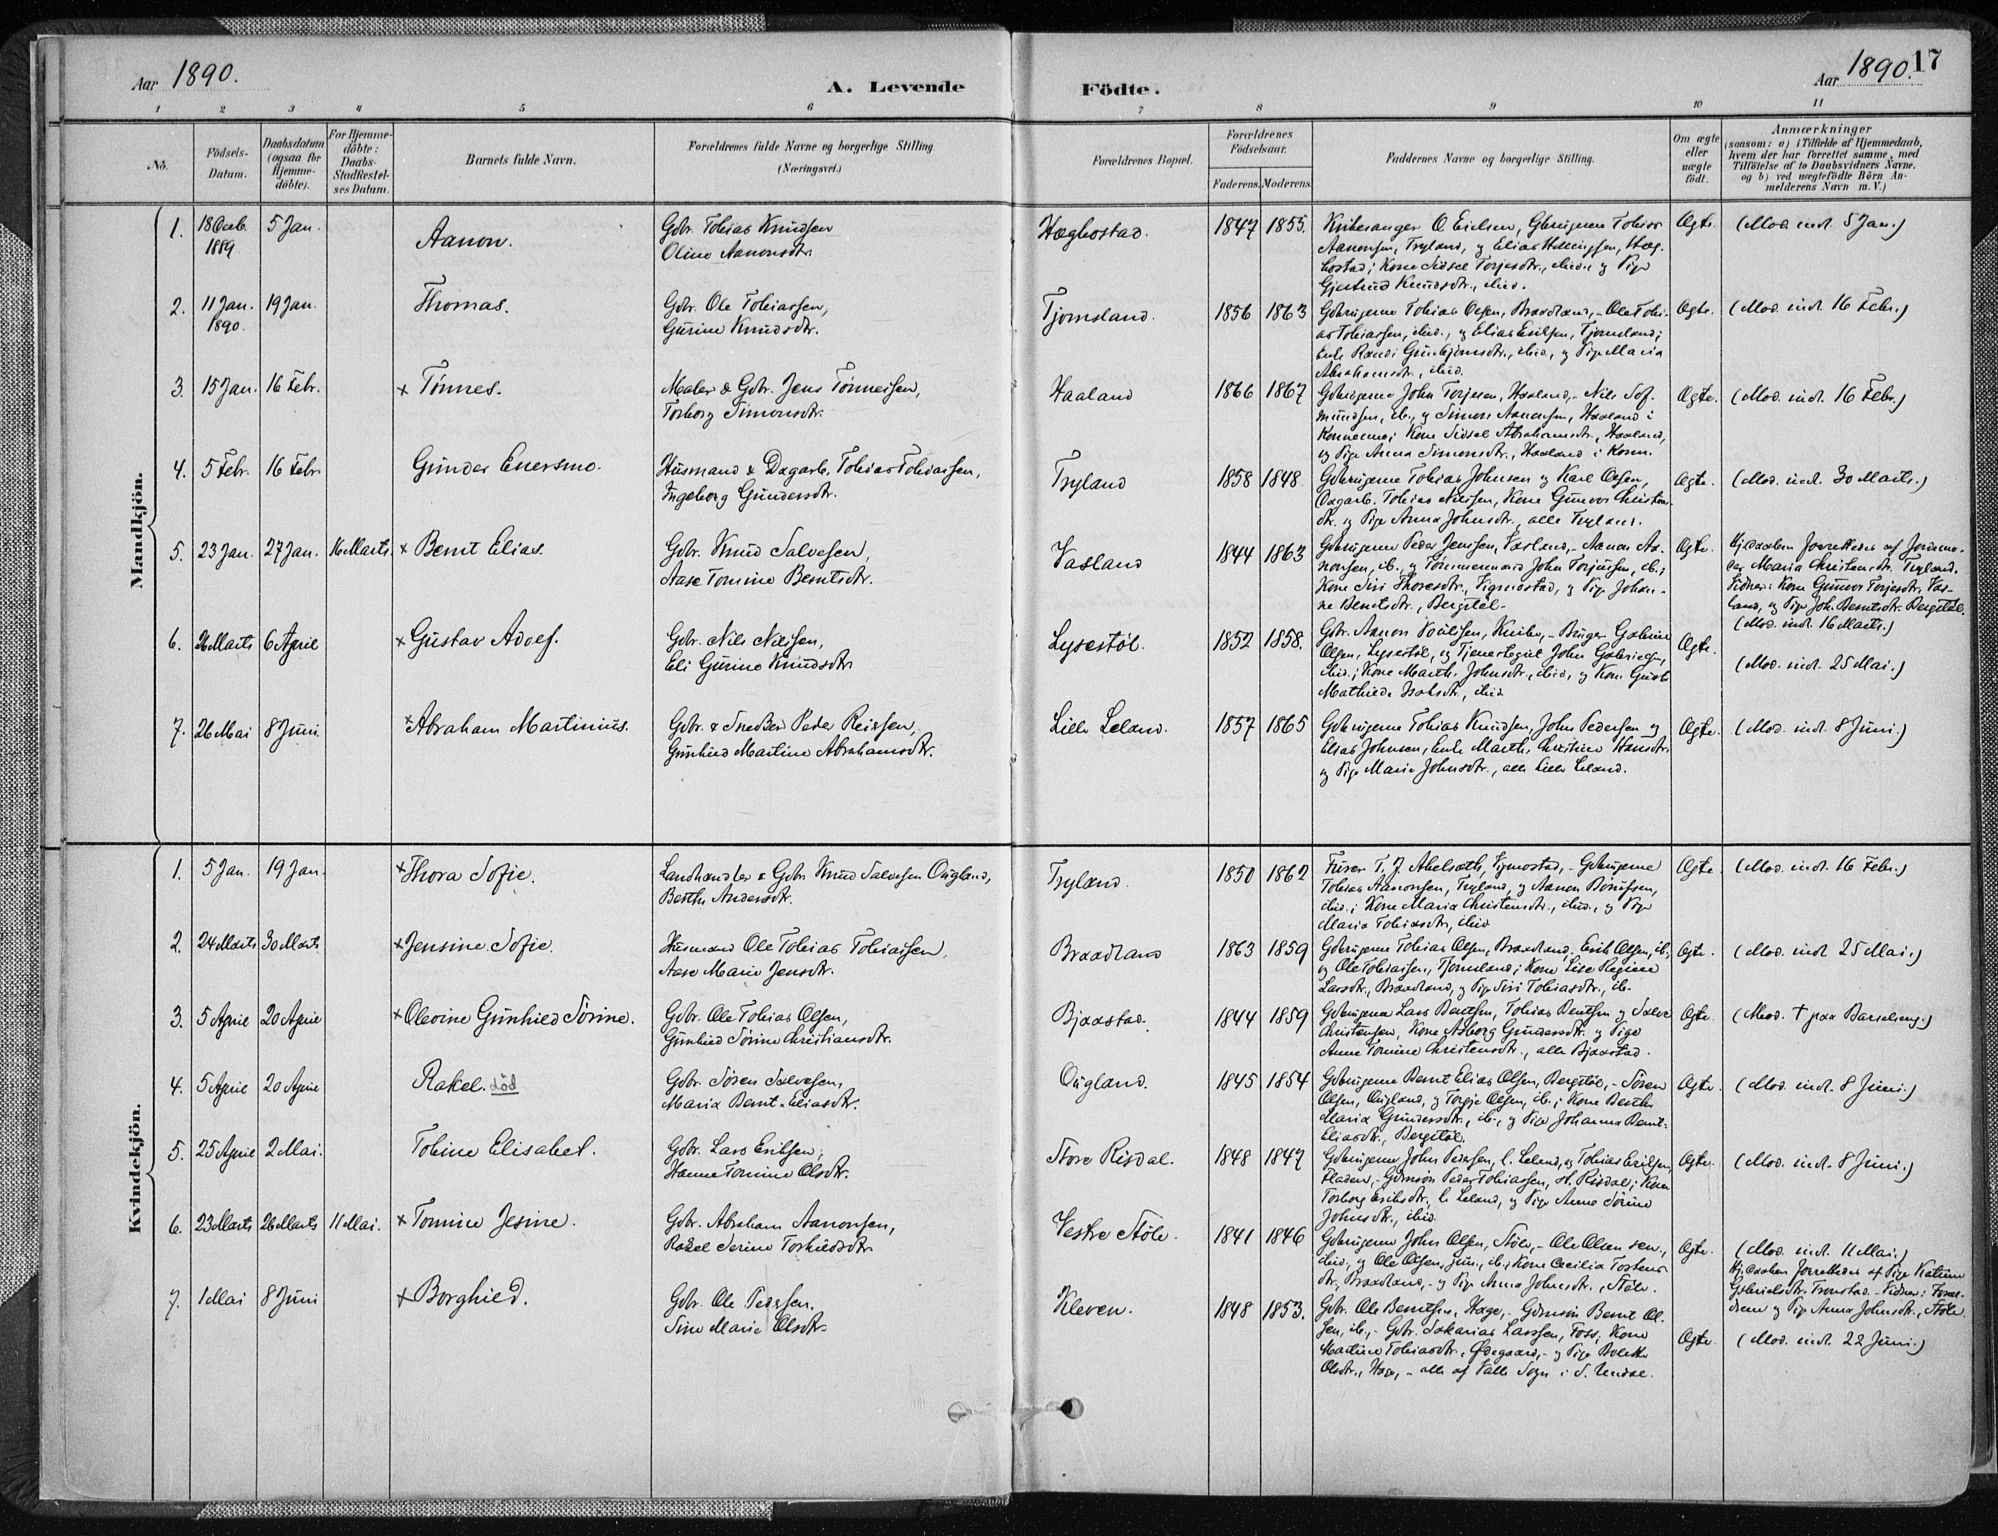 Aar 1890.
A. Levende
Födte.
Aar 1890. 17
1 2 3 4 5 6 7 8 9 10 11
No.
Födsels-Datum.
Daabsdatum (ogsaa for Hjemme-döbte).
For Hjemme-döbte: Daabs-Stadfæstel-ses Datum.
Barnets fulde Navn.
Forældrenes fulde Navne og borgerlige Stilling. (Næringsvei.)
Forældrenes Bopæl.
Forældrenes Födselsaar.
Faderens. Moderens.
Faddernes Navne og borgerlige Stilling.
Om ægte eller uægte födt.
Anmærkninger
(saasom: a) i Tilfælde af Hjemmedaab,
hvem der har forrettet samme, med
Tilföielse af to Daabsvidners Navne,
og b) ved uægtefödte Börn An-
melderens Navn m. V.)
Mandkjön.
1. 18 Decb. 1889 5 Jan. Aanon. Gdbr. Tobias Knudsen Oline Aanonsdtr. Høgbostad. 1847 1855. Kirkesanger O Eielsen, Gbrugerne Tobias Aanonsen, Tryland, og Elias Hellingsen, Høgbostad; Kone Sidsel Torjesdtr., ibid. og Pige Gjertrud Knudsdtr., ibid. Ægte. (Mod. indt. 5 Jan.)
2. 11 Jan. 1890. 19 Jan. Thomas. Gdbr. Ole Tobiassen, Gurine Knudsdtr. Tjomsland. 1856 1863 Gdbrugerne Tobias Olsen, Braadland, - Ole Tobias Tobiassen, ibid., og Elias Eriksen, Tjomsland; Enke Randi Gunbjørnsdtr., ibid., og Pige Maria Abrahamsdtr., ibid. Ægte. (Mod. indt. 16 Febr.)
3. 15 Jan. 16 Febr. × Tønnes. Maler & Gdbr. Jens Tønnessen, Torborg Simonsdtr. Haaland 1866 1867 Gdbrugerne John Torjesen, Haaland, - Nils Sigmundsen, ib., og Simon Aanensen, Haaland i Konnesmo; Kone Sidsel Abrahamsdtr., Haaland, og Pige Anna Simonsdtr., Haaland i Konn. Ægte. (Mod. indt. 16 Febr.)
4. 5 Febr. 16 Febr. Gunder Enersmo. Husmand & Dagarb. Tobias Tobiassen, Ingeborg Gundersdtr. Tryland 1858 1848 Gdbrugerne Tobias Johnsen og Karl Olsen, Dagarb. Tobias Nilsen, Kone Gunvor Christensdtr. og Pige Anna Johnsdtr., alle Tryland. Ægte. (Mod. indt. 30 Marts.)
5. 23 Jan. 27 Jan. 16 Marts. × Bernt Elias. Gdbr. Knud Salvesen, Aase Tomine Berntsdtr. Vasland 1844 1863 Gdbrugerne Peder Jenssen, Vasland, - Aanon Aanonsen, ib., og Tømmermand John Torjusen, ib.; Kone Siri Thoresdtr., Vigmostad, og Pige Johanne Berntsdtr., Bergstøl. Ægte. Hj.daaben forrettedes af Jordemoder Maria Christensdtr. Tryland. Vidner: Kone Gunvor Torjesdtr., Vasland, og Pige Joh. Berntsdtr. Bergstøl. (Mod. indt. 16 Marts.)
6. 26 Marts 6 April × Gustav Adolf. Gdbr. Nils Nilsen, Eli Gurine Knudsdtr. Lysestøl. 1852 1858. Gdbr. Aanon Poulsen, Knibe, - Bruger Gabriel Olsen, Lysestøl, og Tjenestegut John Gabrielsen, ibid.; Kone Marthe Johnsdtr., ibid., og Kone Mathilde Isaksdtr., ibid Ægte. (Mod. indt. 25 Mai.)
7. 26 Mai 8 Juni. × Abraham Martinius. Gdbr. & Snedker Peder Reiersen, Gunhild Martine Abrahamsdtr. Lille Leland. 1857 1865 Gdbrugerne Tobias Knudsen, John Pedersen og Elias Johnsen, Enke Marthe Christine Hansdtr. og Pige Marie Johnsdtr., alle Lille Leland. Ægte. (Mod. indt. 8 Juni.)
Kvindekjön.
1. 5 Jan. 19 Jan. × Thora Sofie. Landhandler & Gdbr. Knud Salvesen Øugland, Berthe Andersdtr. Tryland. 1850 1862 T. J. Abelsæth, Vigmostad, - Gdbrugerne Tobias Aanonsen, Tryland, og Aanon ibid.; Kone Maria Christensdtr., ibid., og Pige Maria Tobiasdtr., ibid Ægte. (Mod. indt. 16 Febr.)
2. 24 Marts 30 Marts × Jensine Sofie. Husmand Ole Tobias Tobiassen, Aase Marie Jensdtr. Braadland 1863 1859 Gdbrugerne Tobias Olsen, Braadland, Erik Olsen, ib., og Ole Tobiassen, Tjomsland; Kone Lise Regine Larsdtr., Braadland, og Pige Siri Tobiasdtr., ib. Ægte. (Mod. indt 25 Mai.)
3. 5 April 20 April × Olevine Gunhild Sørine. Gdbr. Ole Tobias Olsen, Gunhild Sørine Christiansdtr. Bjaastad. 1844 1859 Gdbrugerne Lars Berntsen, Tobias Berntsen og Salve Christensen, Kone Asborg Gundersdtr. og Pige Anne Tomine Christensdtr., alle Bjaastad. Ægte. (Mod. † paa Barselseng.)
4. 5 April 20 April Rakel. død Gdbr. Søren Salvesen, Maria Bernt-Eliasdtr. Øugland. 1845 1854 Gdbrugerne Bernt Elias Olsen, Bergstøl, - Søren Olsen, Øugland, og Torgje Olsen, ib.; Kone Berthe Maria Gundersdtr., ib., og Pige Johanna Bernt-Eliasdtr., Bergstøl. Ægte. (Mod. indt. 8 Juni.)
5. 25 April 2 Mai. Tobine Elisabet. Gdbr. Lars Eriksen, Hanne Tomine Olsdtr. Store Risdal. 1848 1847 Gdbrugerne John Pedersen, l. Leland, og Tobias Eriksen, Fladen, - Gdmson Peder Tobiassen, st. Risdal; Kone Torborg Eriksdtr., l. Leland, og Pige Anne Sørine Johnsdtr., ibid. Ægte. (Mod. indt. 8 Juni.)
6. 23 Marts 26 Marts 11 Mai. × Tomine Jesine. Gdbr. Abraham Aanonsen, Rakel Serine Torkildsdtr. Vestre Støle. 1841 1846 Gdbrugerne John Olsen, Støle, - Ole Olsen sen., ibid., og Ole Olsen, jun., ib.; Kone Cecilia Torkensdtr., Braadland, - og Pige Anna Johnsdtr., Støle. Ægte. (Mod. indt. 11 Mai.) Hj.daaben forrettedes af Pige Katrine Gabrielsdtr. Tronstad. Vidner: Forældrene og Pige Anna Johnsdtr., Støle.
7. 1 Mai 8 Juni × Borghild. Gdbr. Ole Pedersen, Sine Marie Olsdtr. Kleven. 1848 1853. Gdbr. Ole Berntsen, Hage, - Gdmsøn Bernt Olsen, ib., - Gdbr. Sakarias Larssen, Foss, Kone Martine Tobiasdtr., Ødegaard, - og Pige Bolette Olsdtr., Hage, - alle af Valle Sogn i S. Undal. Ægte. (Mod. indt. 22 Juni.)